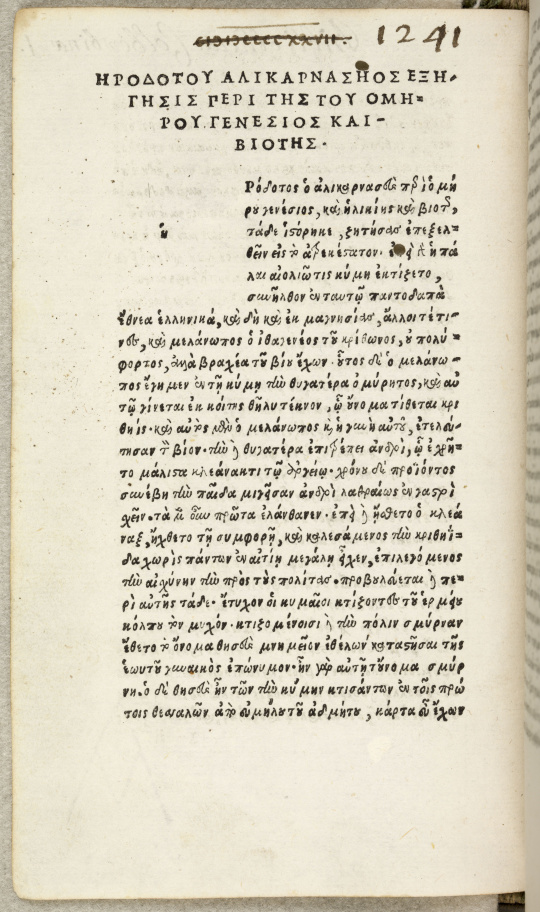 CIↃIↃCCCCXXVII. 1241
ΗΡΟΔΟΤΟΥ ΑΛΙΚΑΡΝΑΣΗΟΣ ΕΞΗ-
ΓΗΣΙΣ ΠΕΡΙ ΤΗΣ ΤΟΥ ΟΜΗ=
ΡΟΥ ΓΕΝΕΣΙΟΣ ΚΑΙ-
ΒΙΟΤΗΣ.
Ρόδοτος ὁ ἁλικαρνασσεὺς περὶ ὁμή
ρου γενέσιος, καὶ ἡλικίης καὶ βιοτῆς,
ἡ τάδε ἱστόρηκε, ζητήσας ἐπεξελ-
θεῖν εἰς τὸ ἀτρεκέστατον. ἐπεὶ ἡ πά
λαι αἰολιῶτις κύμη ἐκτίζετο,
συνῆλθον ἐν ταυτῷ παντοδαπὰ
ἔθνεα ἑλληνικά, καὶ δὴ καὶ ἐκ μαγνησίας, ἄλλοι τέ τι-
νες, καὶ μελάνωπος ὁ ἰθαγενέος τοῦ κρίθωνος, οὐ πολύ=
φορτος, ἀλλὰ βραχέα τοῦ βίου ἔχων. οὗτος δὲ ὁ μελάνω-
πος ἔγημεν ἐν τῇ κύμῃ τὴν θυγατέρα ὁμύρητος, καὶ αὐ
τῷ γίνεται ἐκ κοίτης θῆλυ τέκνον, ᾧ οὔνομα τίθεται κρη
θηίς. καὶ αὐτὸς μὲν ὁ μελάνωπος καὶ ἡ γυνὴ αὐτοῦ, ἐτελεύ-
τησαν τὸν βίον. τὴν δὲ θυγατέρα ἐπιτρέπει ἀνδρὶ, ᾧ ἐχρῆ=
το μάλιστα κλεάνακτι τῷ ἀργείῳ. χρόνου δὲ προϊόντος
συνέβη τὴν παῖδα μιγῆσαν ἀνδρὶ λαθραίως ἐν γαστρὶ
σχεῖν. τὰ μὲν οὖν πρῶτα ἐλάνθανεν. ἐπεὶ δὲ ᾔσθετο ὁ κλεά
ναξ, ἤχθετο τῇ συμφορῇ, καὶ καλεσάμενος τὴν κριθηΐ-
δα χωρὶς πάντων ἐν αἰτίῃ μεγάλῃ εἶχεν, ἐπιλεγόμενος
τὴν αἰσχύνην τὴν πρὸς τοὺς πολίτας. προβουλεύεται δὲ πε-
ρὶ αὐτῆς τάδε. ἔτυχον οἱ κυμαῖοι κτίζοντες τοῦ ἑρμείου
κόλπου τὸν μυχόν. κτιζομένοισι δὲ τὴν πόλιν σμύρναν
ἔθετο τὸ ὄνομα θησεὺς μνημεῖον ἐθέλων καταστῆσαι τῆς
ἑωυτοῦ γυναικὸς ἐπώνυμον. ἦν γὰρ αὐτῇ τοὔνομα σμύρ
νη. ὁ δὲ θησεὺς ἦν τῶν τὴν κύμην κτισάντων ἐν τοῖς πρώ
τοις θεσσαλῶν ἀπὸ εὐμήλου τοῦ ἀδμήτου, κάρτα εὖ ἔχων